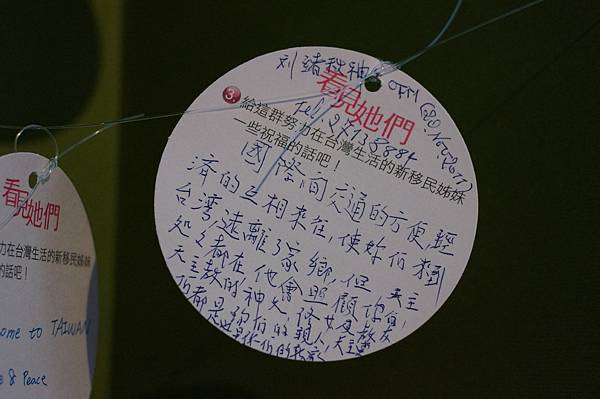 刘緒 神 OFM (20. Nov 2012)
看見她們
tel: 27135884
3. 給這群努力在台灣生活的新移民姊妹
一些祝福的話吧！
國際間交通的方便,經
濟的互相來往,使妳们到
台灣遠離了家鄉,但天主
知道都在他會照顧你们,
天主教的神父,修女及教友
们都是妳们的親人,天主
是你们的
看見她們
在台灣生活的新移民姊妹
的話吧！
ome to TAIWAN
& Peace